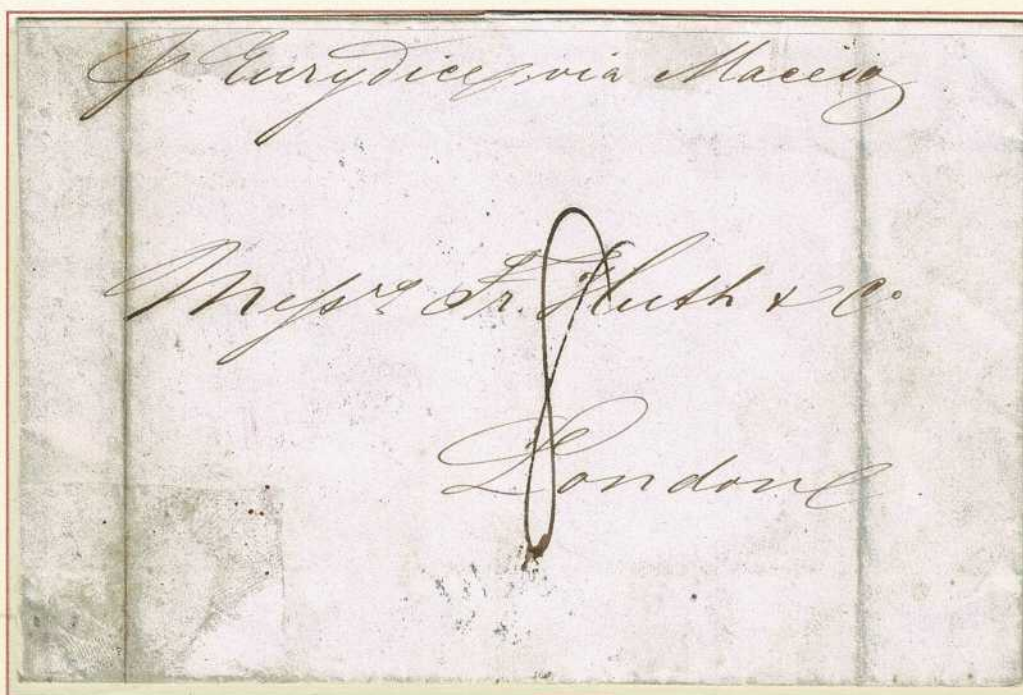 p Eurydice, via Maceio
Messrs Fr. Huth & Co
8
London